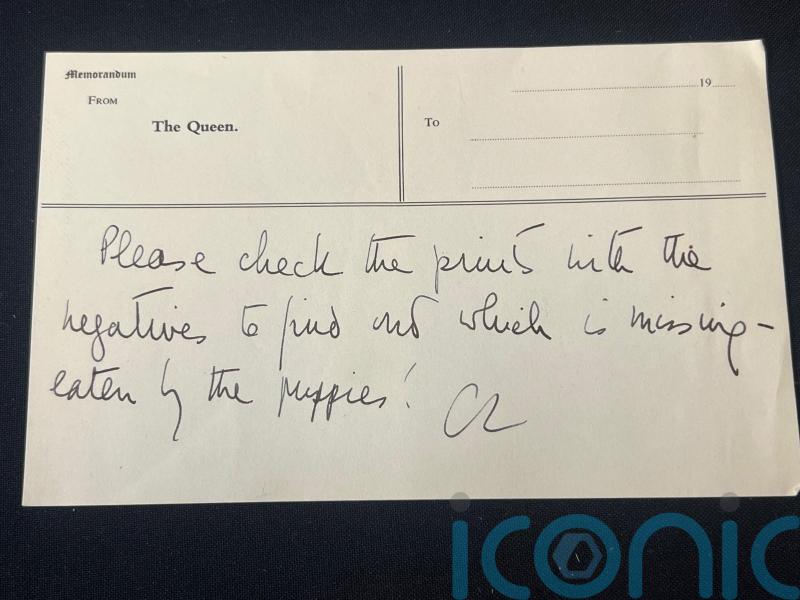 Memorandum
FROM
The Queen.
19
To
Please check the prints with the
negatives to find out which is missing –
eaten by the puppies!
iconic